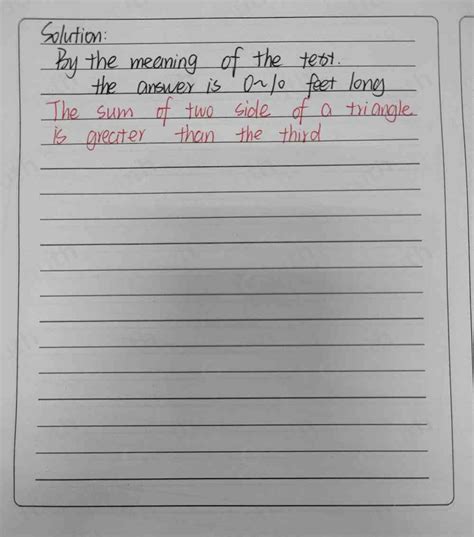 Solution:
By the meaning of the text.
the answer is 0~10 feet long
The sum of two side of a triangle
is greater than the third